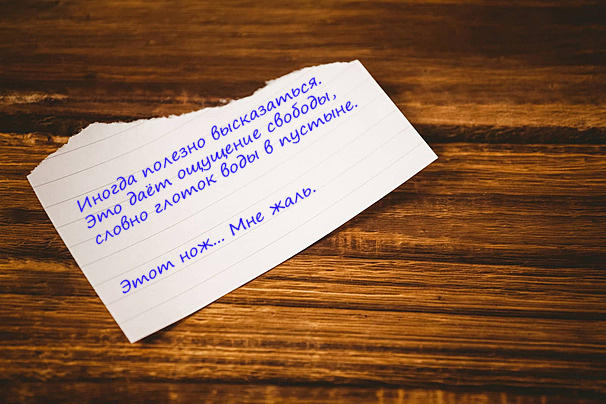 Иногда полезно высказаться.
Это даёт ощущение свободы,
словно глоток воды в пустыне.
Этот нож... Мне жаль.